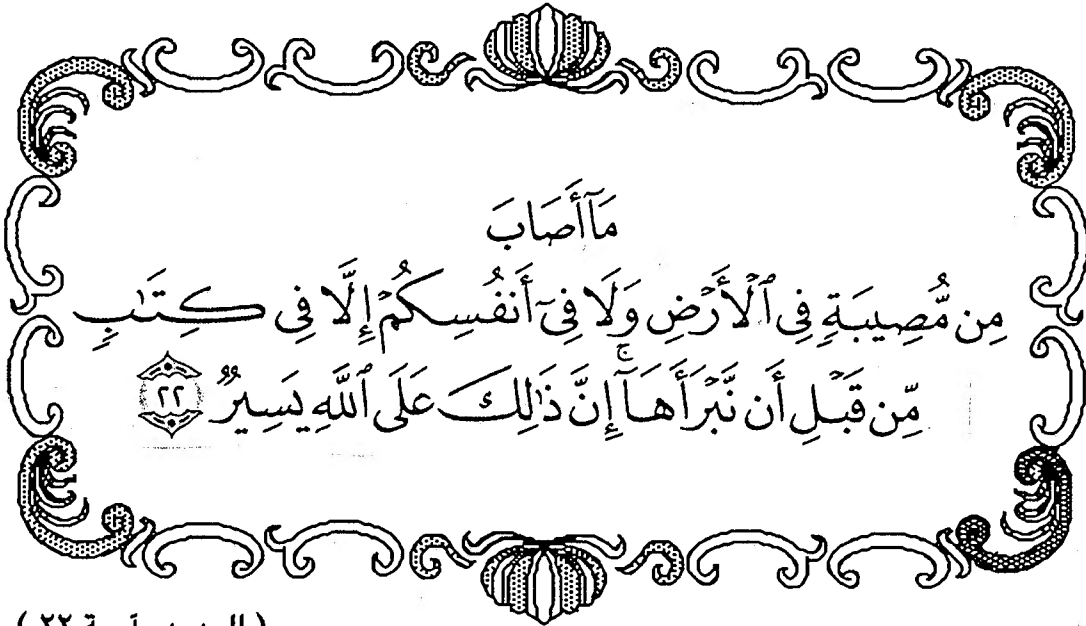 مَآ أَصَابَ
مِن مُّصِيبَةٍ فِى ٱلْأَرْضِ وَلَا فِىٓ أَنفُسِكُمْ إِلَّا فِى كِتَٰبٍ
مِّن قَبْلِ أَن نَّبْرَأَهَآ ۚ إِنَّ ذَٰلِكَ عَلَى ٱللَّهِ يَسِيرٌ ٢٢
( ٢٢